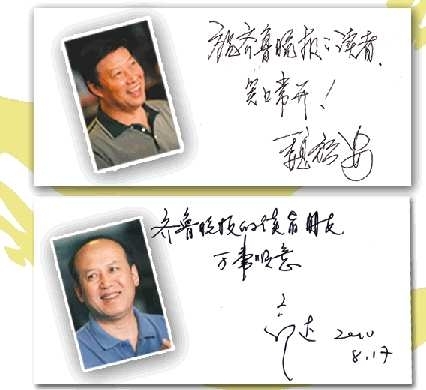 祝齐鲁晚报的读者
笑口常开!
魏积安
齐鲁晚报的读者朋友
万事如意
郭达 2010
8.17